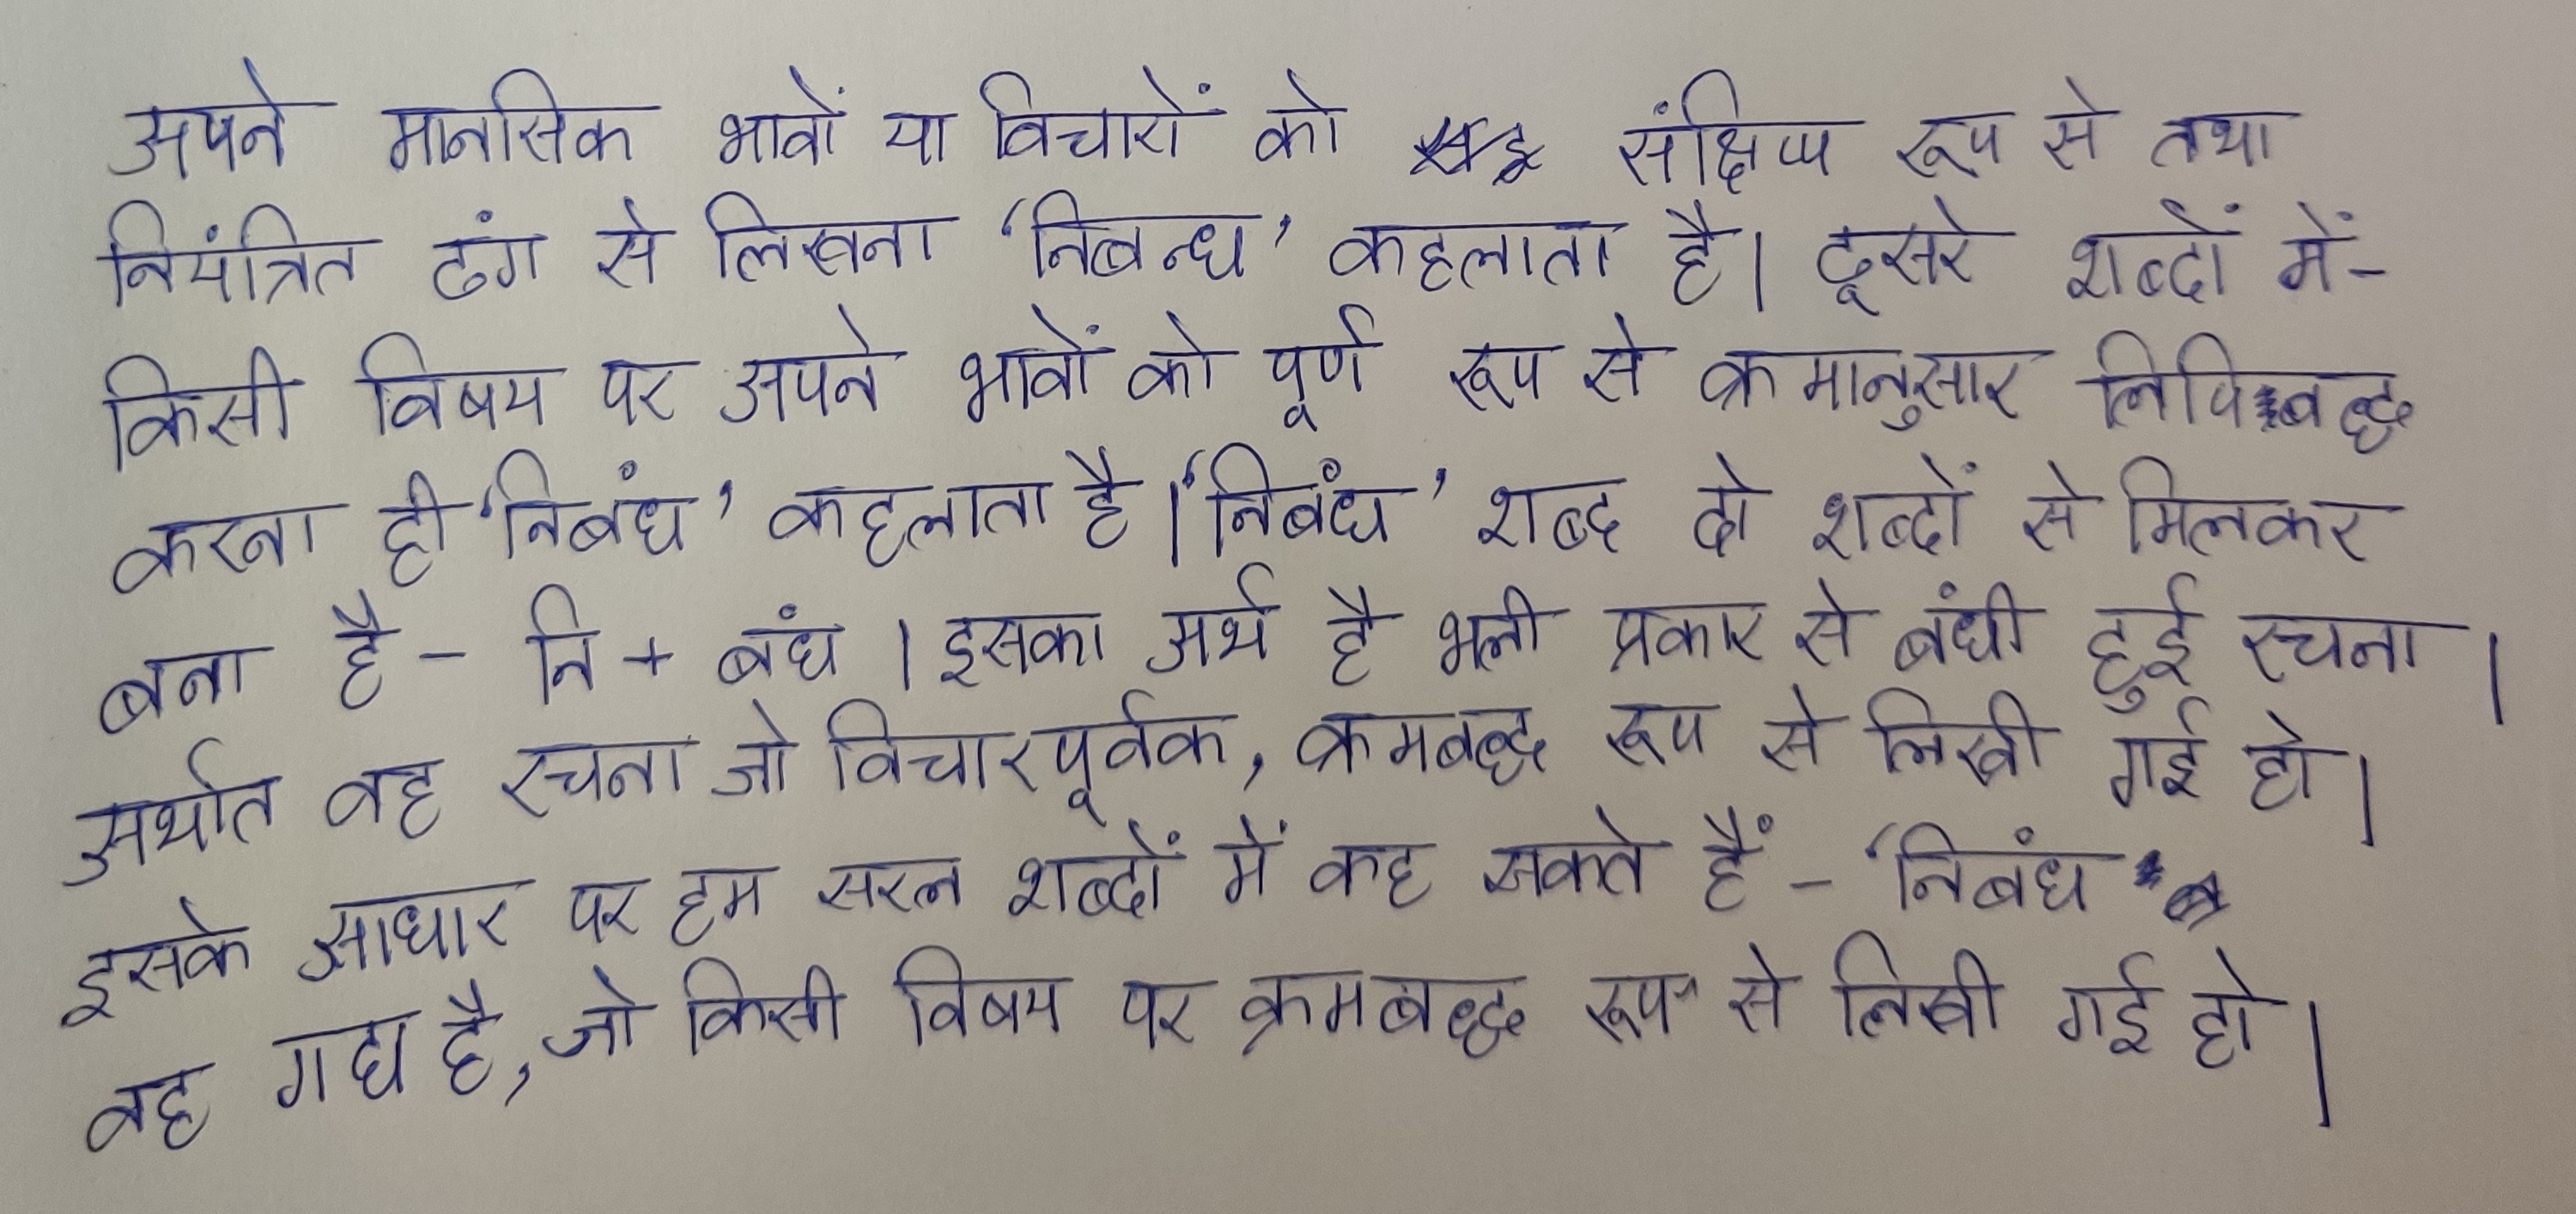 अपने मानसिक भावों या विचारों को संक्षिप्त रूप से तथा
नियंत्रित ढंग से लिखना ‘निबन्ध’ कहलाता है। दूसरे शब्दों में-
किसी विषय पर अपने भावों को पूर्ण रूप से क्रमानुसार लिपिबद्ध
करना ही ‘निबंध’ कहलाता है। ‘निबंध’ शब्द दो शब्दों से मिलकर
बना है - नि + बंध । इसका अर्थ है भली प्रकार से बंधी हुई रचना ।
अर्थात वह रचना जो विचारपूर्वक, क्रमबद्ध रूप से लिखी गई हो।
इसके आधार पर हम सरल शब्दों में कह सकते हैं - ‘निबंध’
वह गद्य है, जो किसी विषय पर क्रमबद्ध रूप से लिखी गई हो।